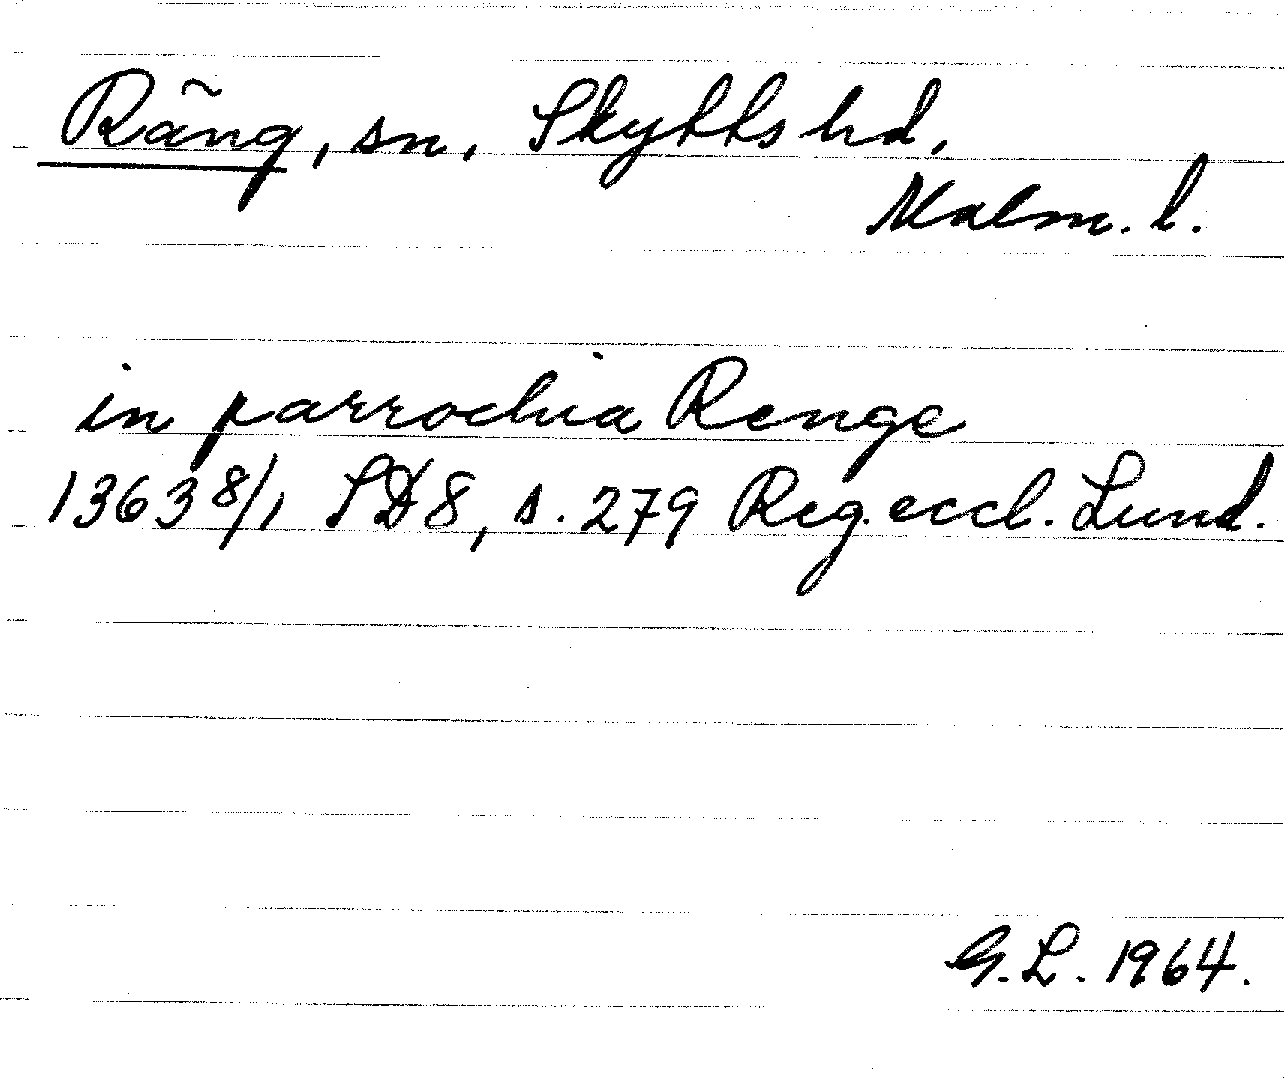 Räng, sn, Skytts hd,
Malm. l.
in parrochia Renge
1363 8/1 SD 8, s. 279 Reg. eccl. Lund.
G. L. 1964.